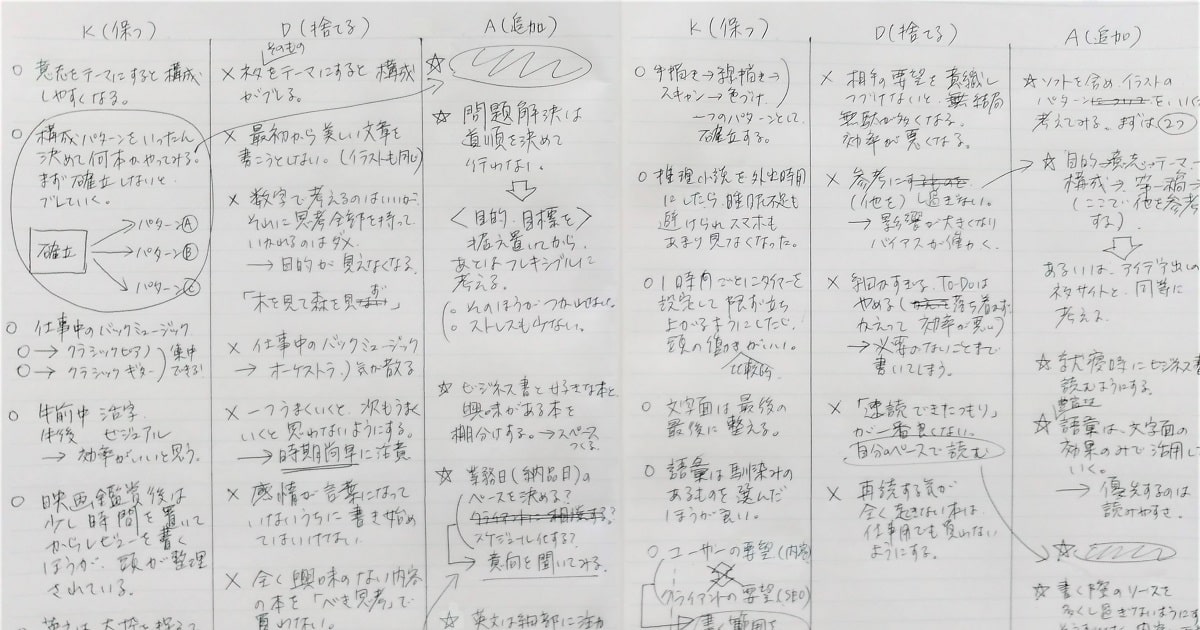 K(保つ)
○ 意志をテーマにすると構成
しやすくなる。
○ 構成パターンをいったん
決めて何本かやってみる。
まず確立しないと
ブレていく。
確立
パターンⒶ
パターンⒷ
パターンⒸ
○ 仕事中のバックミュージック
○→ クラシックピアノ
○→ クラシックギター
集中
できる!
○ 午前中 活字
午後 ビジュアル
→ 効率がいいと思う。
○ 映画鑑賞後は
少し時間を置いて
からレビューを書く
ほうが、頭が整理
されている。
D(捨てる)
そのもの
× ネタをテーマにすると構成
がブレる。
× 最初から美しい文章を
書こうとしない。(イラストも同じ)
× 数字で考えるのはいいが、
それに思考全部を持って
いかれるのはダメ。
→ 目的が見えなくなる。
「木を見て森を見ず」
× 仕事中のバックミュージック
→ オーケストラ 気が散る
× 一つうまくいくと、次もうまく
いくと思わないようにする。
→ 時期尚早に注意
× 感情が言葉になって
いないうちに書き始め
てはいけない。
× 全く興味のない内容
の本を「べき思考」で
買わない。
A(追加)
☆
☆ 問題解決は
道順を決めて
行わない。
〈目的、目標を〉
据え置いてから
あとはフレキシブルに
考える。
○ そのほうがつかれない。
○ ストレスも少ない。
☆ ビジネス書と好きな本と
興味がある本を
棚分けする。→スペース
つくる
☆ 業務日(納品日)の
ペースを決める?
クライアントに相談する?
スケジュール化する?
→ 意向を聞いてみる。
☆ 英文は細部に
K(保つ)
○ 手描き→線描き→
スキャン→色づけ
一つのパターンとして、
確立する。
○ 推理小説を外出時用
にしたら、睡眠不足も
避けられスマホも
あまり見なくなった。
○ 1日時間ごとにタイマーを
設定して限ず立ち
上がるようにしたら、
頭の働きがいい。
比較的
○ 文字面は最後の
最後に整える。
○ 語彙は馴染みの
あるものを選んだ
ほうが良い。
○ ユーザーの要望(内容)
クライアントの要望(SEO)
書く範囲を
D(捨てる)
× 相手の要望を意識し
つづけないと、結局
無駄が多くなる。
効率が悪くなる。
× 参考にするものを
(他を)し過ぎない。
→ 影響が大きくなり
バイアスが働かく。
× 細かすぎる、To-Doは
やめる(落ち着かず
かえって効率が悪い)
→ 必要のないことまで
書いてしまう。
× 「速読できたつもり」
が一番良くない。
自分のペースで読む
× 再読する気が
全く起きない本は、
仕事用でも買わない
ようにする。
A(追加)
☆ ソフトを含め、イラストの
パターンをいく
考えてみる。まずは②つ
☆ 目的→意志→テーマ→
構成→第一稿→
(ここで他を参考
する)
あるいは、アイデア出しの
ネタサイトと、同等に
考える
☆ 就寝時にビジネス書
読むようにする。
豊富な
☆ 語彙は、文字面の
効果のみで活用して
いく。
→ 優先するのは
読みやすさ。
☆
☆ 書く際のソースを
多くし過ぎないように